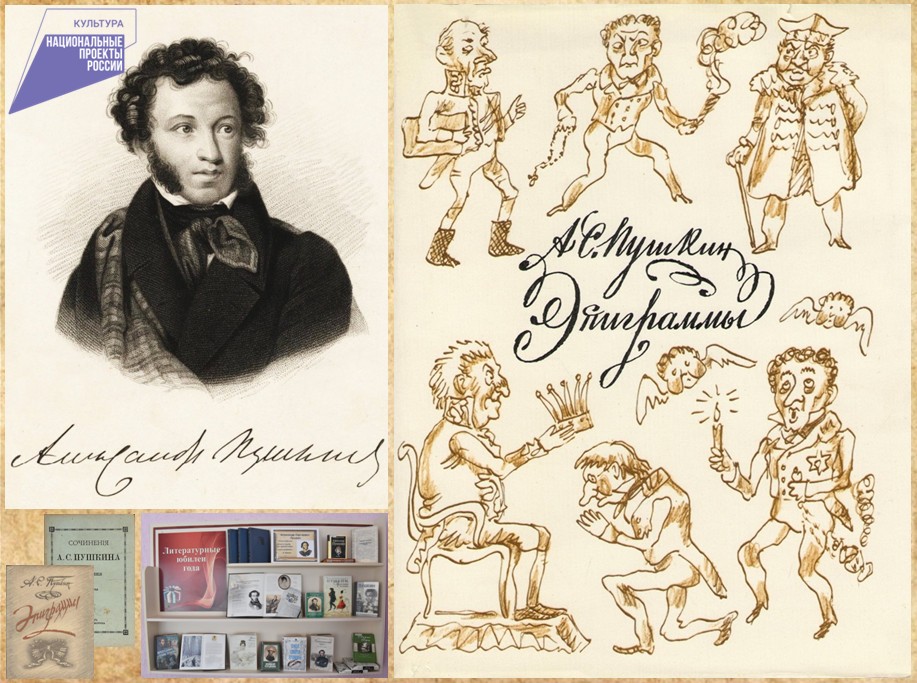 КУЛЬТУРА
НАЦИОНАЛЬНЫЕ
ПРОЕКТЫ
РОССИИ
Александр Пушкин
А.С.Пушкин
Эпиграммы
СОЧИНЕНІЯ
А. С. ПУШКИНА
А. С. Пушкин
Эпиграммы
Литературные
юбилеи
года